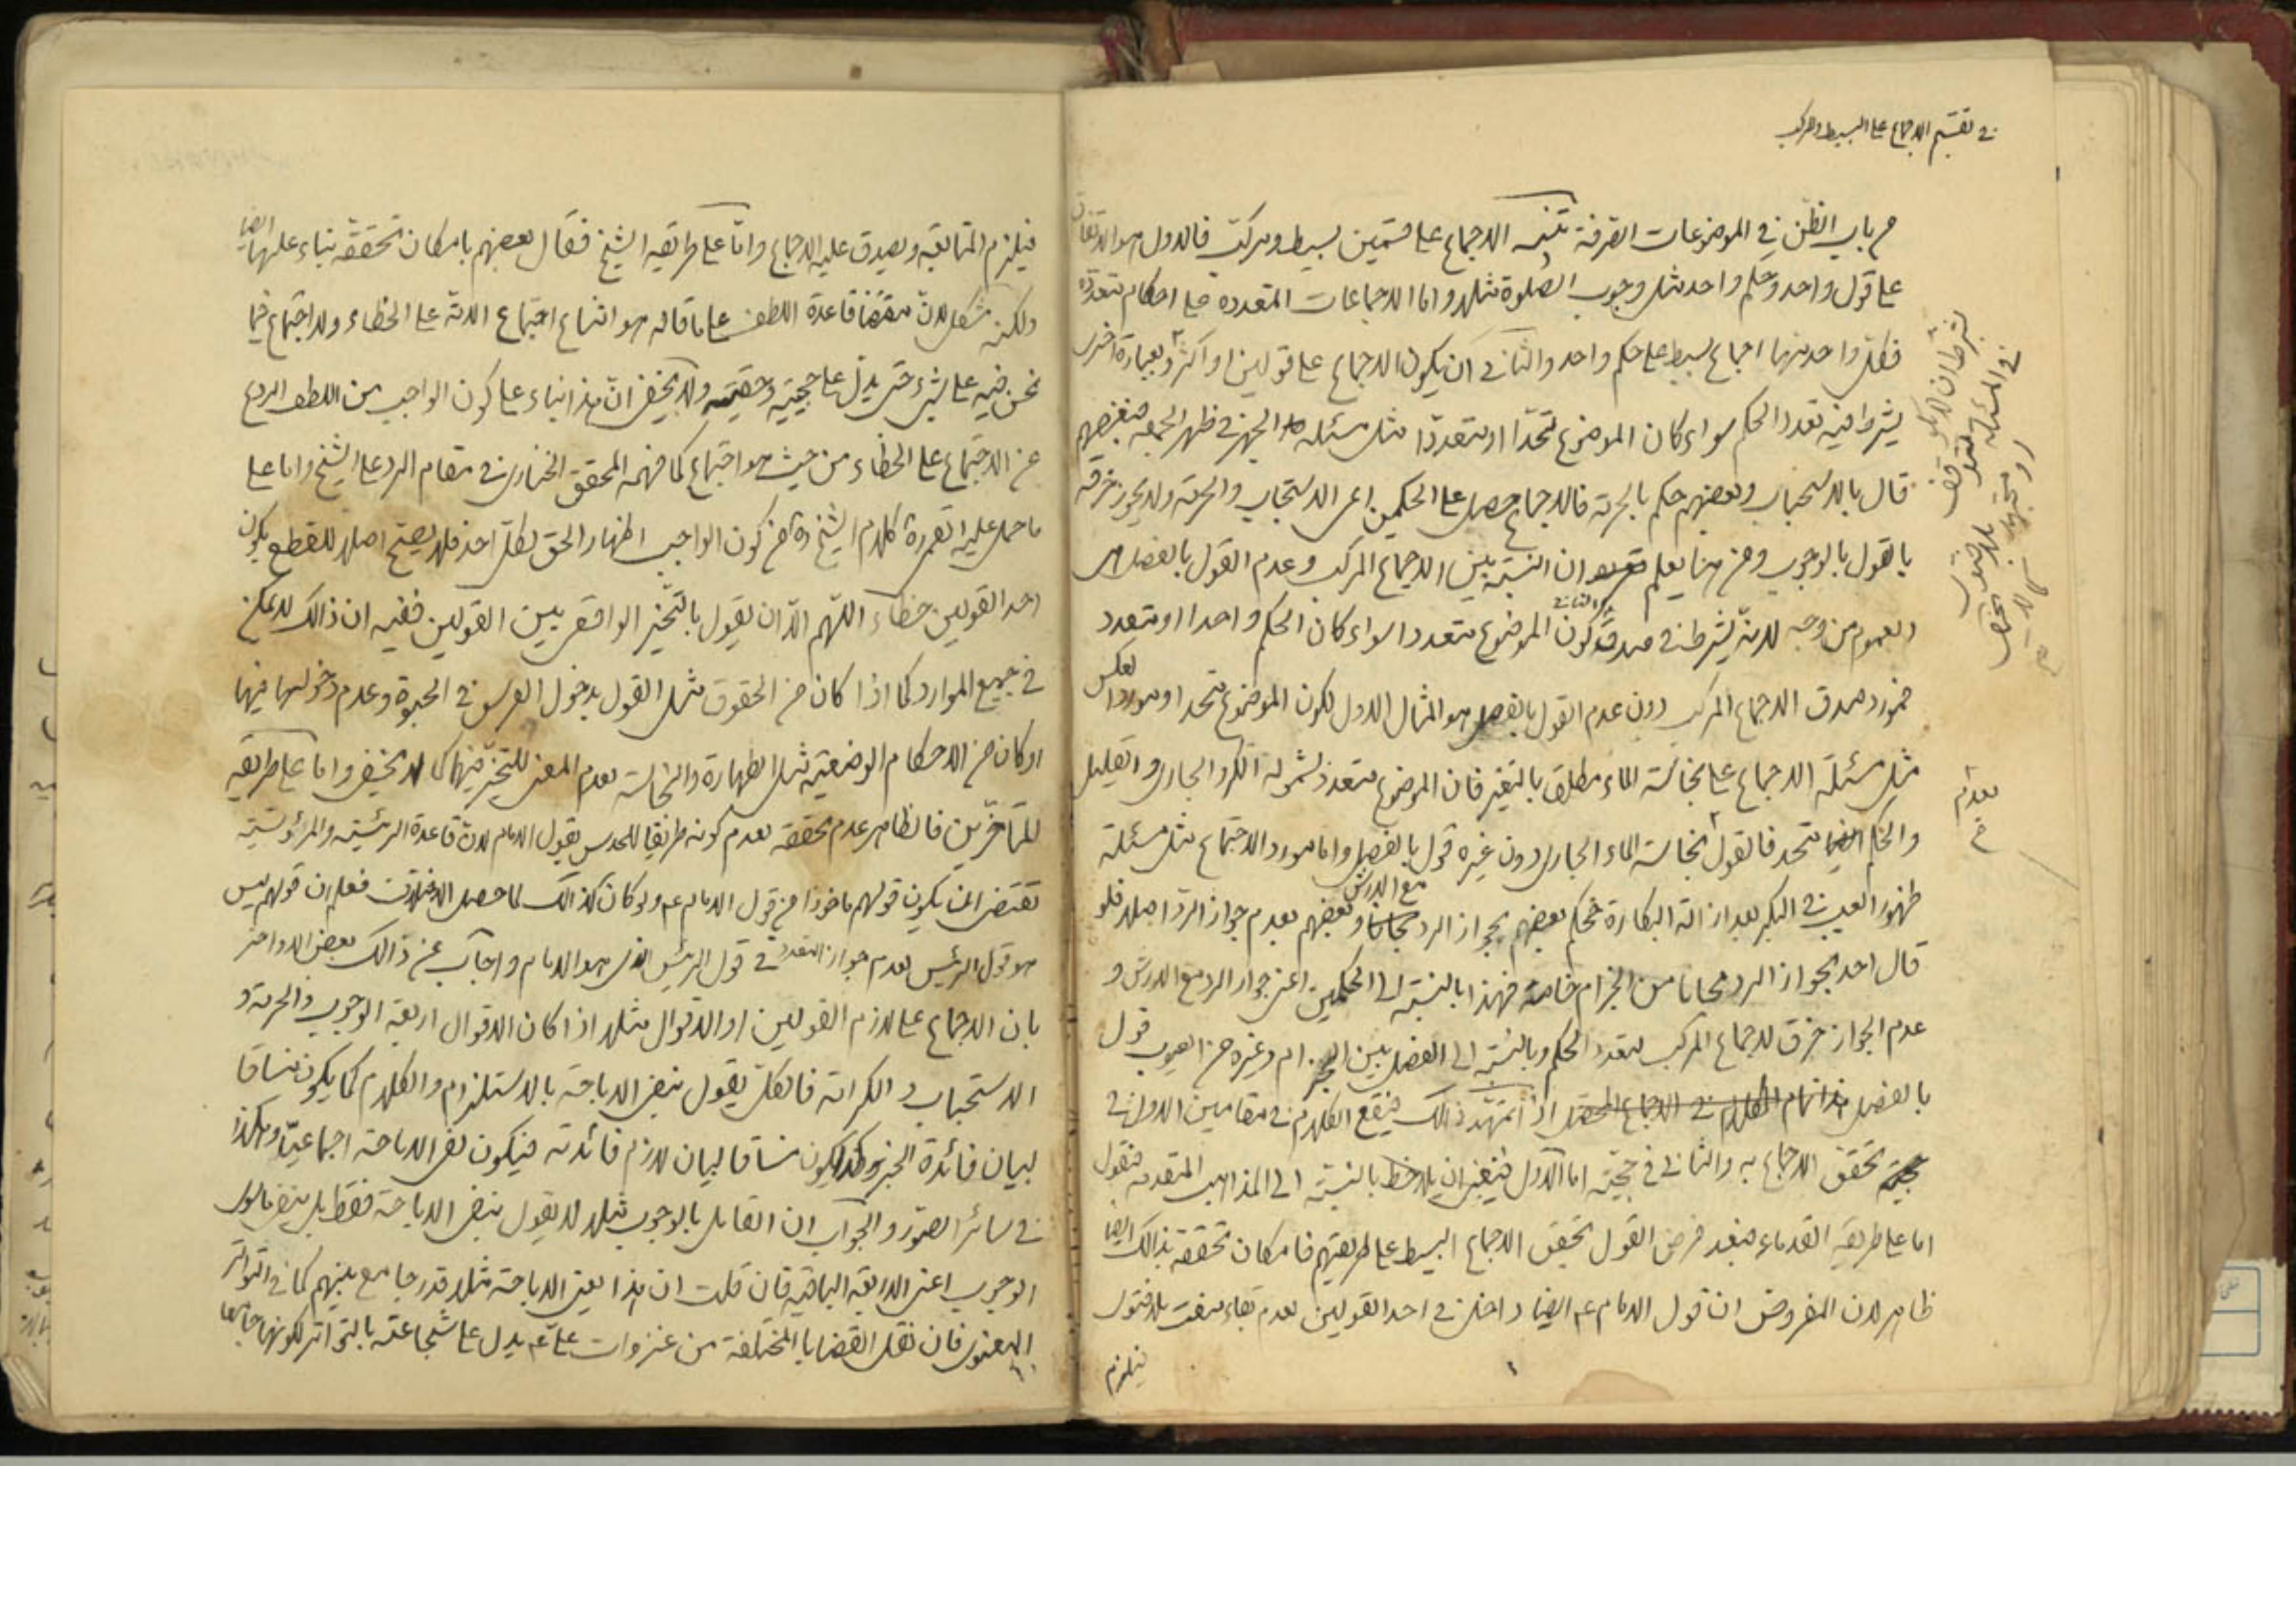 في تقسيم الاجماع على البسيط والمركب
من باب الظن في الموضوعات الصرفة تنبيه الاجماع على قسمين بسيط ومركب فالاول هو الاتفاق
على قول واحد وحكم واحد مثل وجوب الصلوة مثلا واما الاجماعات المتعدده على احكام متعدده
فكل واحد منها اجماع بسيط على حكم واحد والثاني ان يكون الاجماع على قولين او اكثر وبعبارة اخرى
يشترط فيه تعدد الحكم سواء كان الموضوع متحدا او متعددا مثل مسئلة الجهر في ظهر الجمعه فبعضهم
قال بالاستحباب وبعضهم حكم بالحرمة فالاجماع حصل على الحكمين اعني الاستحباب والحرمة ولا يجوز خرقه
بالقول بالوجوب ومن هنا يعلم ان النسبة بين الاجماع المركب وعدم القول بالفصل هي
العموم من وجه لانه يشترط في صدق الثاني كون الموضوع متعددا سواء كان الحكم واحدا او متعدد
فمورد صدق الاجماع المركب دون عدم القول بالفصل هو المثال الاول لكون الموضوع متحدا ومورد العكس
مثل مسئلة الاجماع على نجاسة الماء مطلقا بالتغير فان الموضوع متعدد لشموله الكر والجاري والقليل
والحكم ايضا متحد فالقول بنجاسة الماء الجاري دون غيره قول بالفصل واما مورد الاجتماع مثل مسئلة
ظهور العيب في البكر بعد ازالة البكارة فحكم بعضهم بجواز الرد مجانا مع الارش وبعضهم بعدم جواز الرد اصلا فلو
قال احد بجواز الرد مجانا من الجذام خاصة فهذا بالنسبة الى الحكمين اعني جواز الرد مع الارش و
عدم الجواز خرق للاجماع المركب لتعدد الحكم وبالنسبة الى الفصل بين الجذام وغيره من العيوب قول
بالفصل هذا تمام الكلام في الاجماع المحصل اذا تمهد ذالك فيقع الكلام في مقامين الاول في
حجية تحقق الاجماع به والثاني في حجيته اما الاول فينبغي ان يلاحظ بالنسبة الى المذاهب المتقدمه فنقول
اما على طريقة القدماء فبعد فرض القول بتحقق الاجماع البسيط على طريقتهم فامكان تحققه بذالك ايضا
ظاهر لان المفروض ان قول الامام عم ايضا داخل في احد القولين لعدم بقاء مفت بلا فتوى
فيلزم
بشرط ان لا يكون
في المسئلة متوقف
بعدم
فيلزم المتابعة ويصدق عليه الاجماع واما على طريقة الشيخ فقال بعضهم بامكان تحققه بناء عليها ايضا
ولكنه مشكل لان مقتضى قاعدة اللطف على ما قاله هو امتناع اجتماع الامة على الخطاء ولا اجتماع فيما
نحن فيه على شيء حتى يدل على حجيته وحقيته ولا يخفى ان هذا بناء على كون الواجب من اللطف الردع
عن الاجتماع على الخطاء من حيث هو اجتماع كما فهمه المحقق الخنساري في مقام الرد على الشيخ واما على
ما حمل عليه كلام الشيخ ره من كون الواجب اظهار الحق لكل احد فلا يصح اصلا للقطع بكون
احد القولين خطاء اللهم الا ان يقول بالتخيير الواقعي بين القولين ففيه ان ذالك لا يمكن
في جميع الموارد كما اذا كان من الحقوق مثل القول بدخول الفرس في الحبوة وعدم دخولها فيها
او كان من الاحكام الوضعية مثل الطهارة والنجاسة لعدم المعنى للتخيير فيها كما لا يخفى واما على طريقة
المتاخرين فالظاهر عدم تحققه لعدم كونه طريقا للحدس بقول الامام لان قاعدة الرئيسية والمرئوسية
تقتضى ان يكون قولهم ماخوذا من قول الامام عم ولو كان كذالك لما حصل الاختلاف فعلم ان قولهم ليس
هو قول الرئيس لعدم جواز التعدد في قول الرئيس الذي هو الامام واجاب عن ذالك بعض الاواخر
بان الاجماع على لازم القولين او الاقوال مثلا اذا كان الاقوال اربعة الوجوب والحرمة و
الاستحباب والكراهة فالكل يقول بنفي الاباحة بالاستلزام والكلام كما يكون مساقا
لبيان فائدة الخبر وكذا يكون مساقا لبيان لازم فائدته فيكون نفي الاباحة اجماعيا وهكذا
في سائر الصور والجواب ان القايل بالوجوب مثلا لا يقول بنفي الاباحة فقط بل بنفي ما سوى
الوجوب اعني الاربعة الباقية فان قلت ان هذا يعني الاباحة مثلا قدر جامع بينهم كما في التواتر
المعنوي فان نقل القضايا المختلفة من غزوات على عم يدل على شجاعته بالتواتر لكونها جامعا